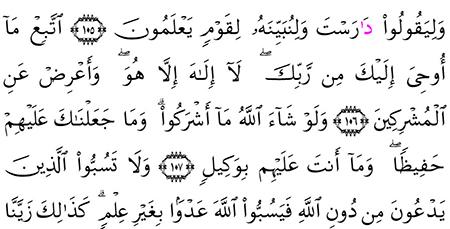 وَلِيَقُولُوا۟ دَٰرَسْتَ وَلِنُبَيِّنَهُۥ لِقَوْمٍۢ يَعْلَمُونَ ۝١٠٥ ٱتَّبِعْ مَآ
أُوحِىَ إِلَيْكَ مِن رَّبِّكَ ۖ لَآ إِلَـٰهَ إِلَّا هُوَ ۖ وَأَعْرِضْ عَنِ
ٱلْمُشْرِكِينَ ۝١٠٦ وَلَوْ شَآءَ ٱللَّهُ مَآ أَشْرَكُوا۟ ۗ وَمَا جَعَلْنَـٰكَ عَلَيْهِمْ
حَفِيظًۭا ۖ وَمَآ أَنتَ عَلَيْهِم بِوَكِيلٍۢ ۝١٠٧ وَلَا تَسُبُّوا۟ ٱلَّذِينَ
يَدْعُونَ مِن دُونِ ٱللَّهِ فَيَسُبُّوا۟ ٱللَّهَ عَدْوًۢا بِغَيْرِ عِلْمٍۢ ۗ كَذَٰلِكَ زَيَّنَّا